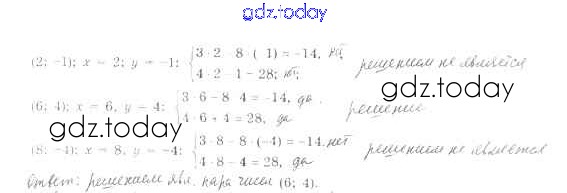 gdz.today
(2; -1); x = 2; y = -1: { 3 · 2 - 8 · (-1) = -14, нет
4 · 2 - 1 - 28; нет, решением не является
(6; 4): x = 6, y = 4: { 3 · 6 - 8 · 4 = -14, да
4 · 6 + 4 = 28, да решение
gdz.today
gdz.today
(8; -4): x = 8, y = -4: { 3 · 8 - 8 · (-4) = -14, нет
4 · 8 - 4 = 28, да решением не является
Ответ: решением явл. пара чисел (6; 4).